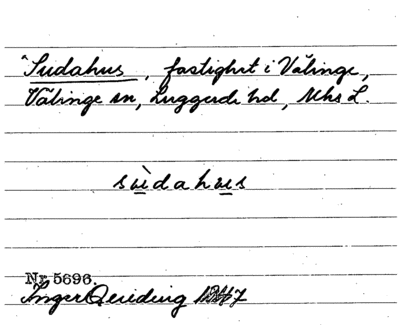 Sudahus, fastighet i Välinge,
Välinge sn, Luggude hd, Mhs L.
sùdahus
Nr 5696.
Inger